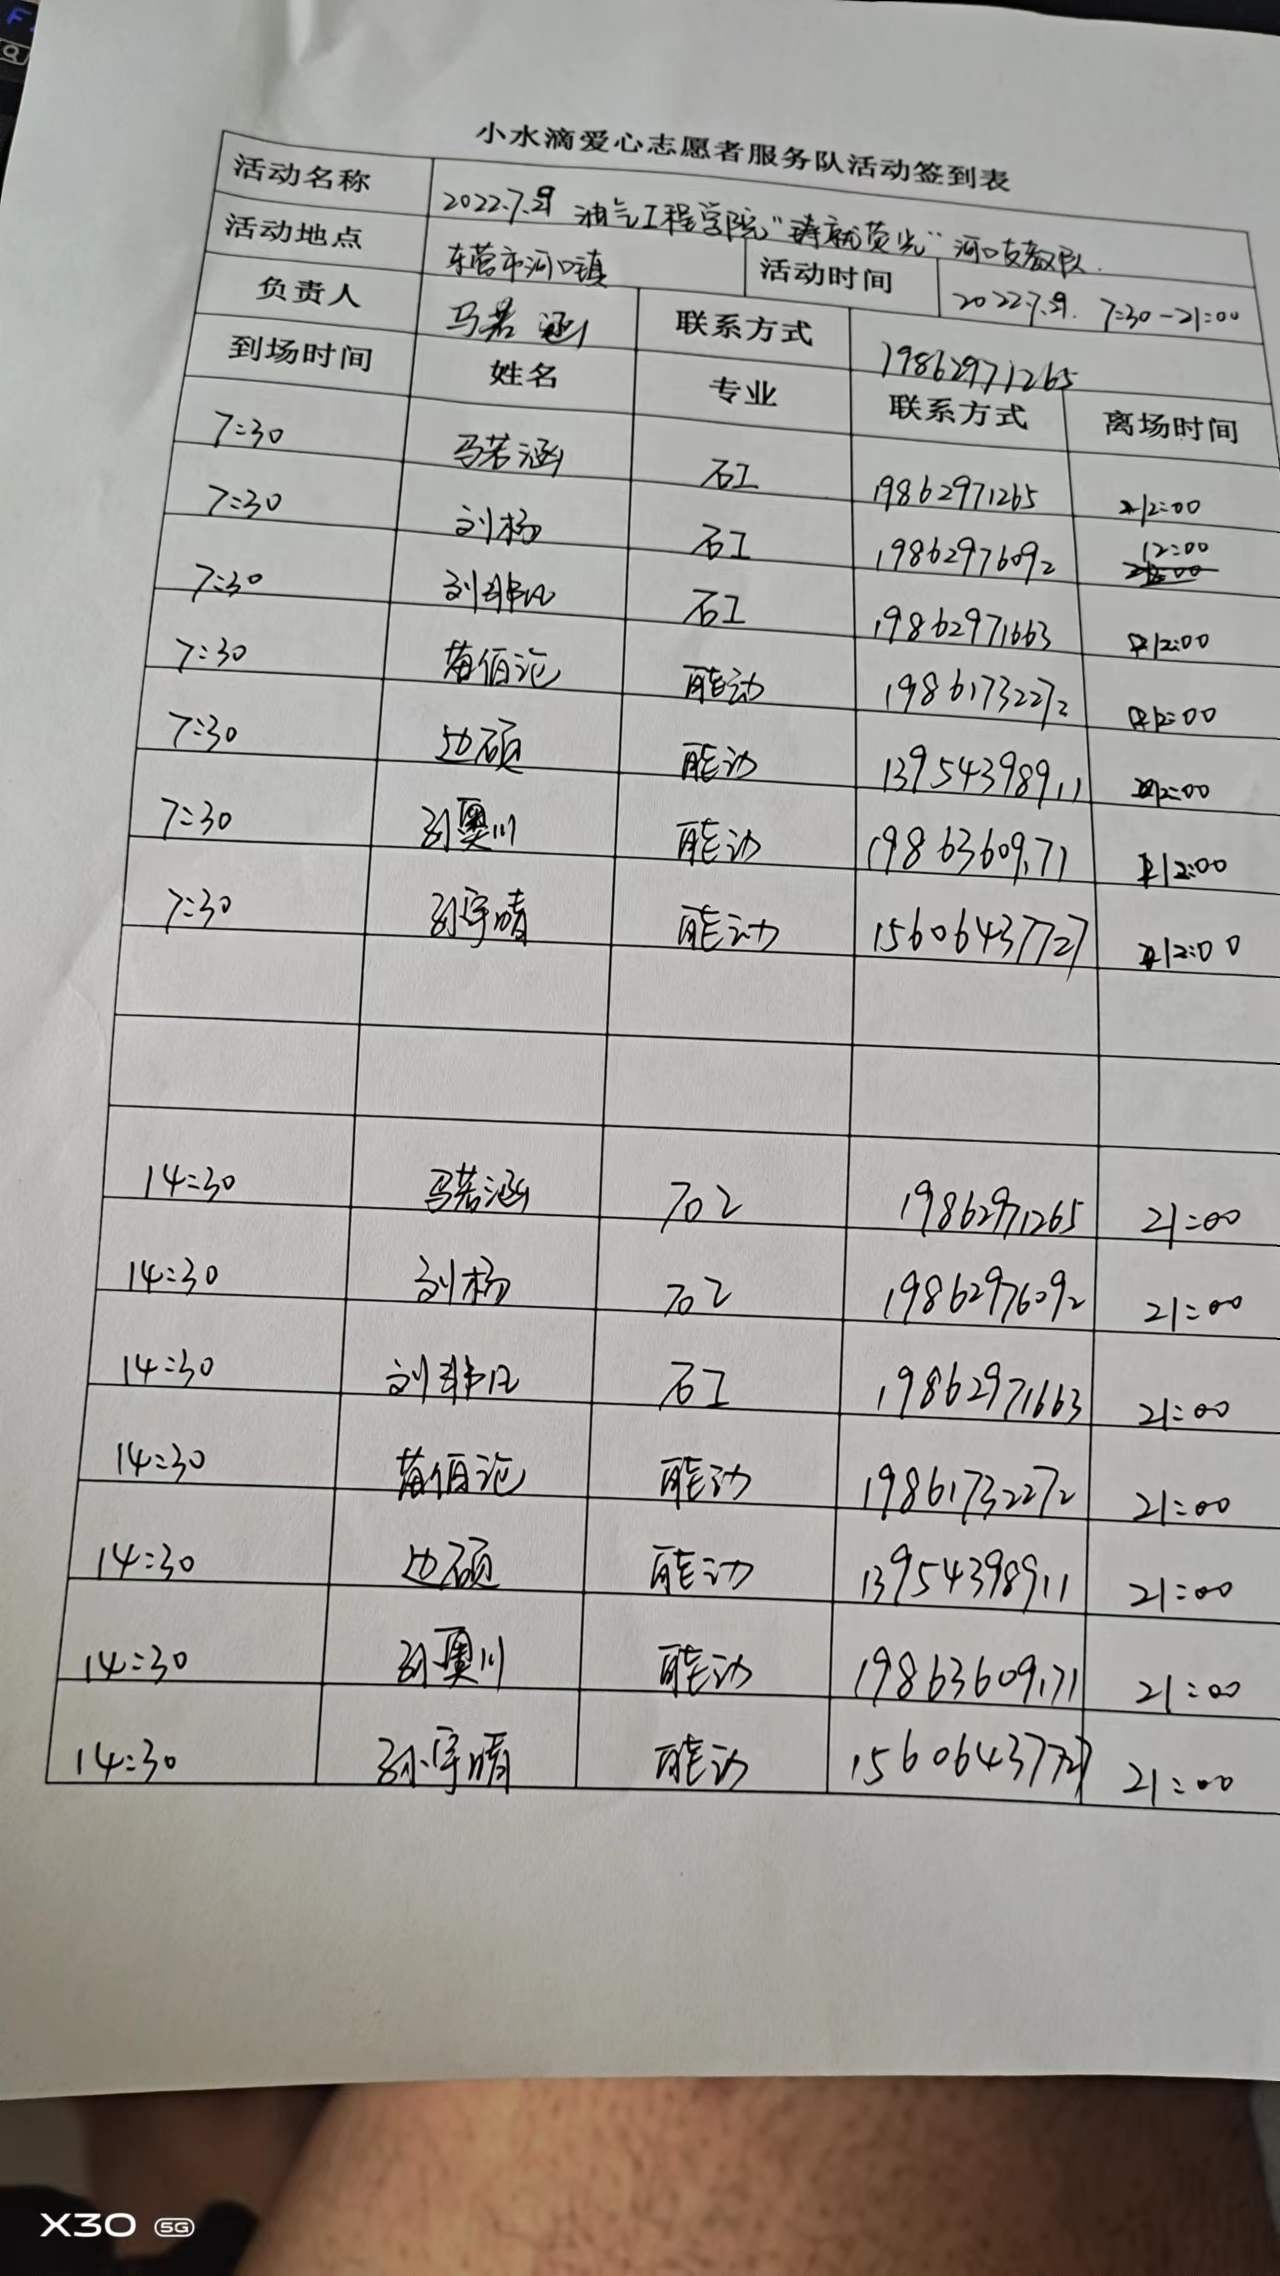 小水滴爱心志愿者服务队活动签到表
活动名称 2022.7.29 油气工程学院"铸就荧光"河口支教队.
活动地点 东营市河口镇 活动时间 2022.7.29. 7:30-21:00
负责人 马若涵 联系方式 19862971265
到场时间 姓名 专业 联系方式 离场时间
7:30 马若涵 石工 19862971265 12:00
7:30 刘杨 石工 19862976092 12:00
7:30 刘非凡 石工 19862971663 12:00
7:30 苗佰沱 能动 19861732272 12:00
7:30 边硕 能动 13954398911 12:00
7:30 孙奥川 能动 19863609171 12:00
7:30 孙宇晴 能动 15606437727 12:00
14:30 马若涵 石工 19862971265 21:00
14:30 刘杨 石工 19862976092 21:00
14:30 刘非凡 石工 19862971663 21:00
14:30 苗佰沱 能动 19861732272 21:00
14:30 边硕 能动 13954398911 21:00
14:30 孙奥川 能动 19863609171 21:00
14:30 孙宇晴 能动 15606437727 21:00
X30 5G